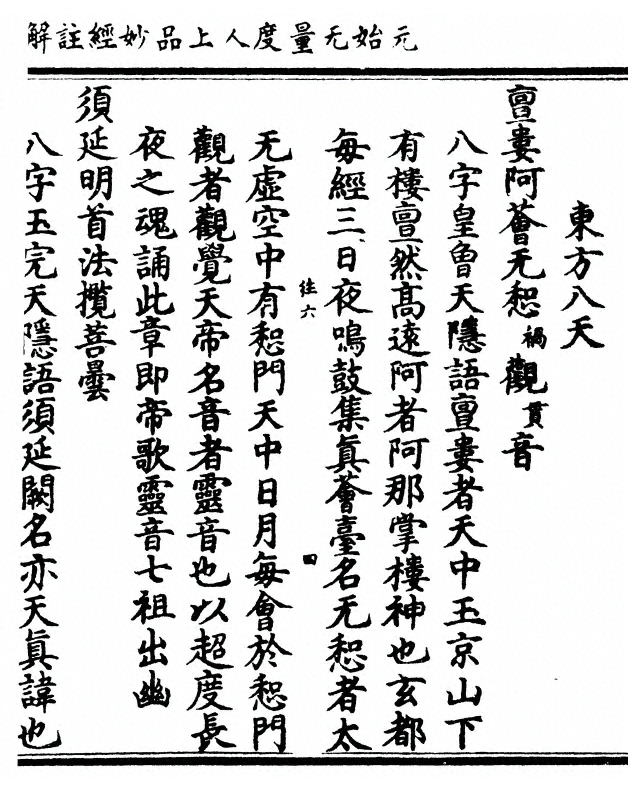 元始无量度人上品妙經註解
東方八天
亶婁阿薈无惒禍觀貫音
八字皇曾天隱語亶婁者天中玉京山下
有樓亶然高遠阿者阿那掌樓神也玄都
每經三日夜鳴鼓集眞薈臺名无惒者太
往六
四
无虛空中有惒門天中日月每會於惒門
觀者觀覺天帝名音者靈音也以超度長
夜之魂誦此章即帝歌靈音七祖出幽
須延明首法攬菩曇
八字玉完天隱語須延闕名亦天眞諱也